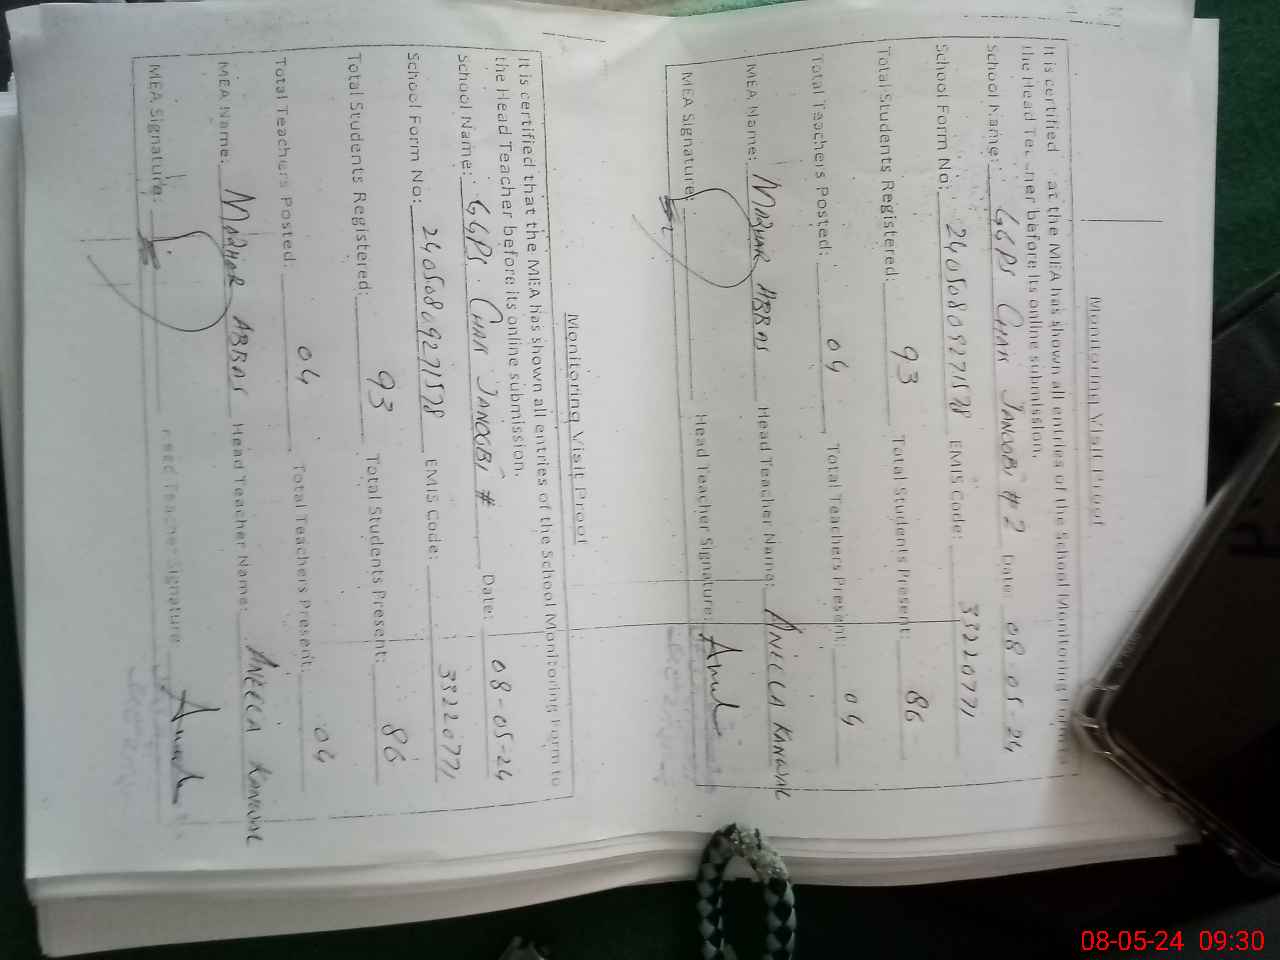 Monitoring Visit Proof
It is certified at the MEA has shown all entries of the School Monitoring Form to
the Head Tea ner before its online submission.
School Name: GGPS CHAK JANOOBI # 2 Date: 08-05-24
School Form No: 24050809271578 EMIS Code: 33220771
Total Students Registered: 93 Total Students Present: 86
Total Teachers Posted: 04 Total Teachers Present: 04
MEA Name: MAZHAR ABBAS Head Teacher Name: ANEELA KANWAL
MEA Signature: Head Teacher Signature:
Monitoring Visit Proof
It is certified that the MEA has shown all entries of the School Monitoring Form to
the Head Teacher before its online submission.
School Name: GGPS CHAK JANOOBI # Date: 08-05-24
School Form No: 24050809271578 EMIS Code: 33220771
Total Students Registered: 93 Total Students Present: 86
Total Teachers Posted: 04 Total Teachers Present: 04
MEA Name: MAZHAR ABBAS Head Teacher Name: ANEELA KANWAL
MEA Signature: Head Teacher Signature
08-05-24 09:30